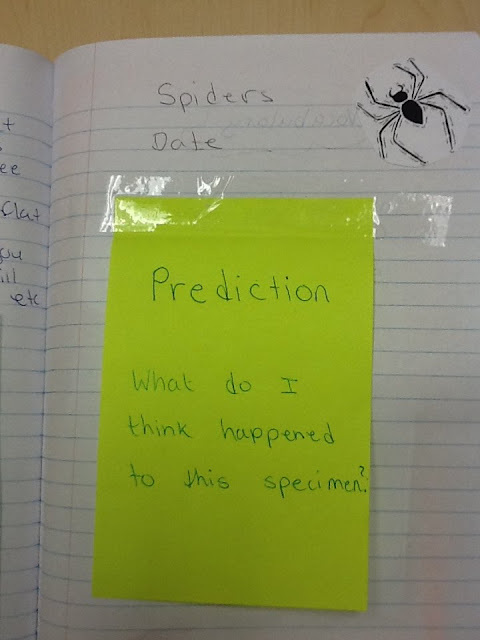 t
ee
flat
you
ill
etc
Spiders
Date
Prediction
What do I
think happened
to this specimen?